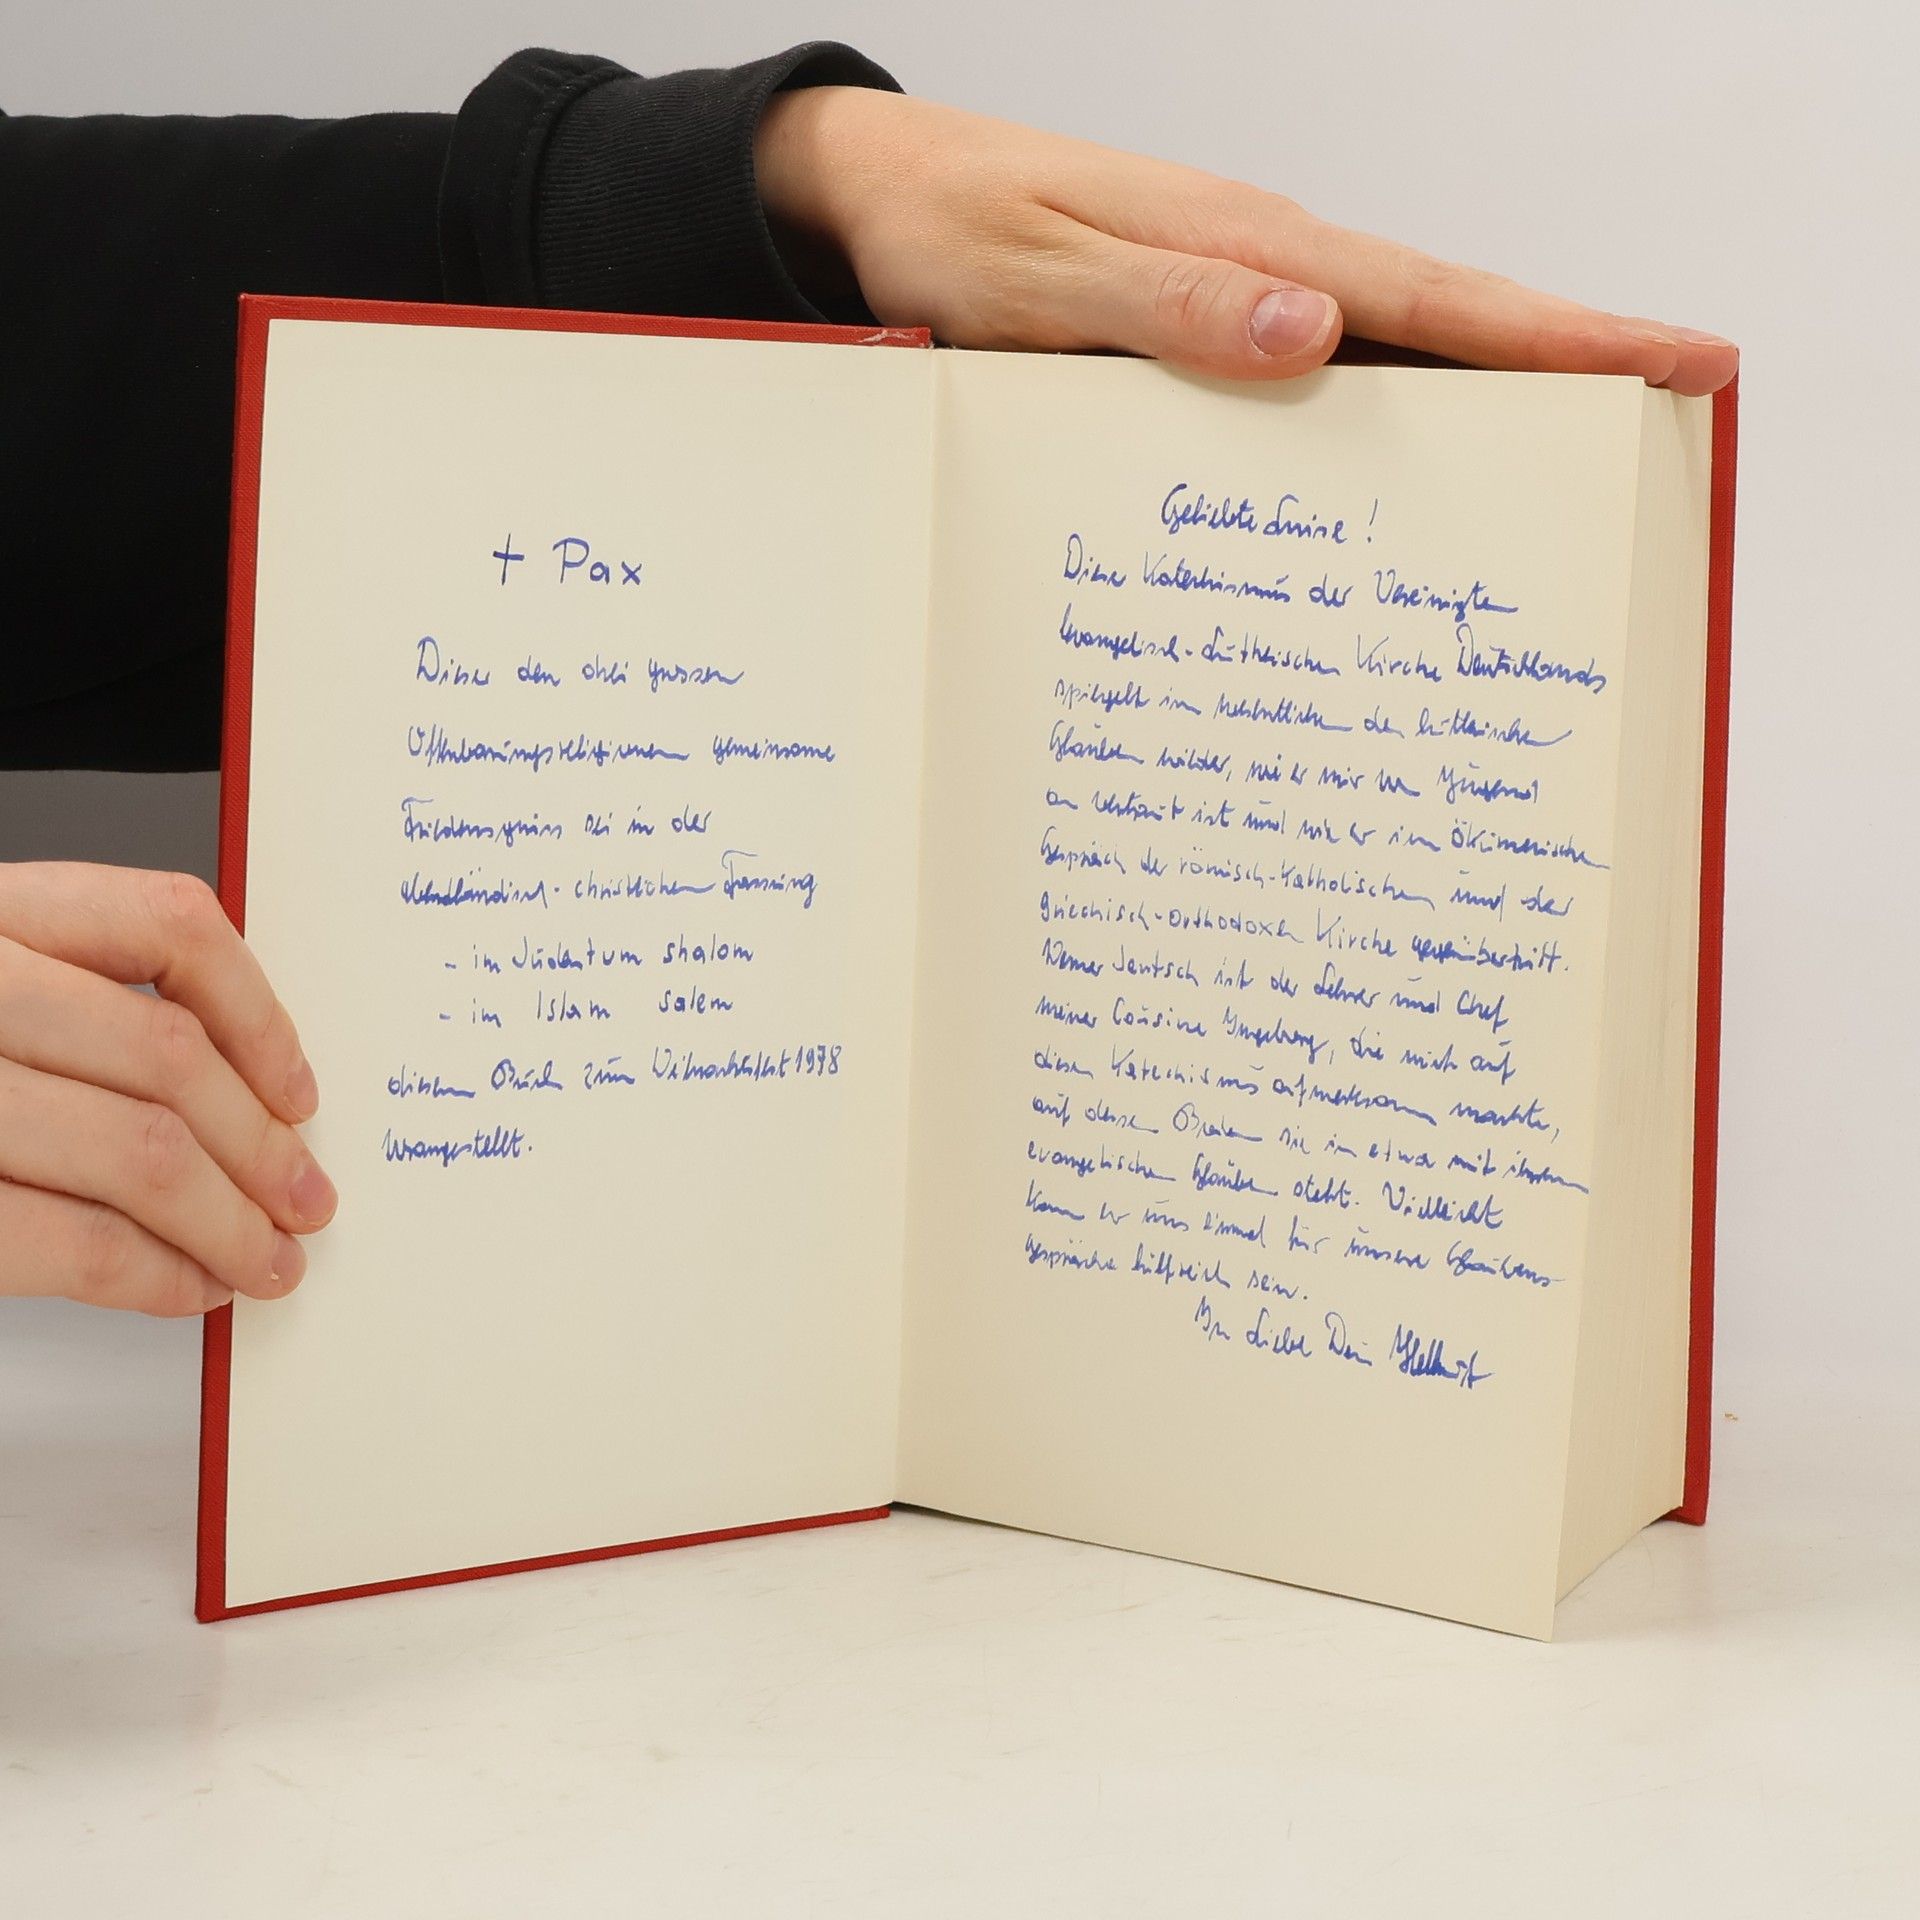 + Pax
Dieser den drei grossen
Offenbarungsreligionen gemeinsame
Friedensgruss sei in der
abendländisch-christlichen Fassung
- im Judentum shalom
- im Islam salem
diesem Buch zum Weihnachtsfest 1978
vorangestellt.
Geliebte Luise!
Dieser Katechismus der Vereinigten
Evangelisch-Lutherischen Kirche Deutschlands
spiegelt im wesentlichen den lutherischen
Glauben wider, wie er mir von Jugend
an vertraut ist und wie er im ökumenischen
Gespräch der römisch-katholischen und der
griechisch-orthodoxen Kirche gegenübertritt.
Werner Jentsch ist der Lehrer und Chef
meiner Cousine Ingeborg, die mich auf
diesen Katechismus aufmerksam machte,
auf dessen Boden sie in etwa mit ihrem
evangelischen Glauben steht. Vielleicht
kann er uns einmal für unsere Glaubens-
gespräche hilfreich sein.
In Liebe Dein Hellmut